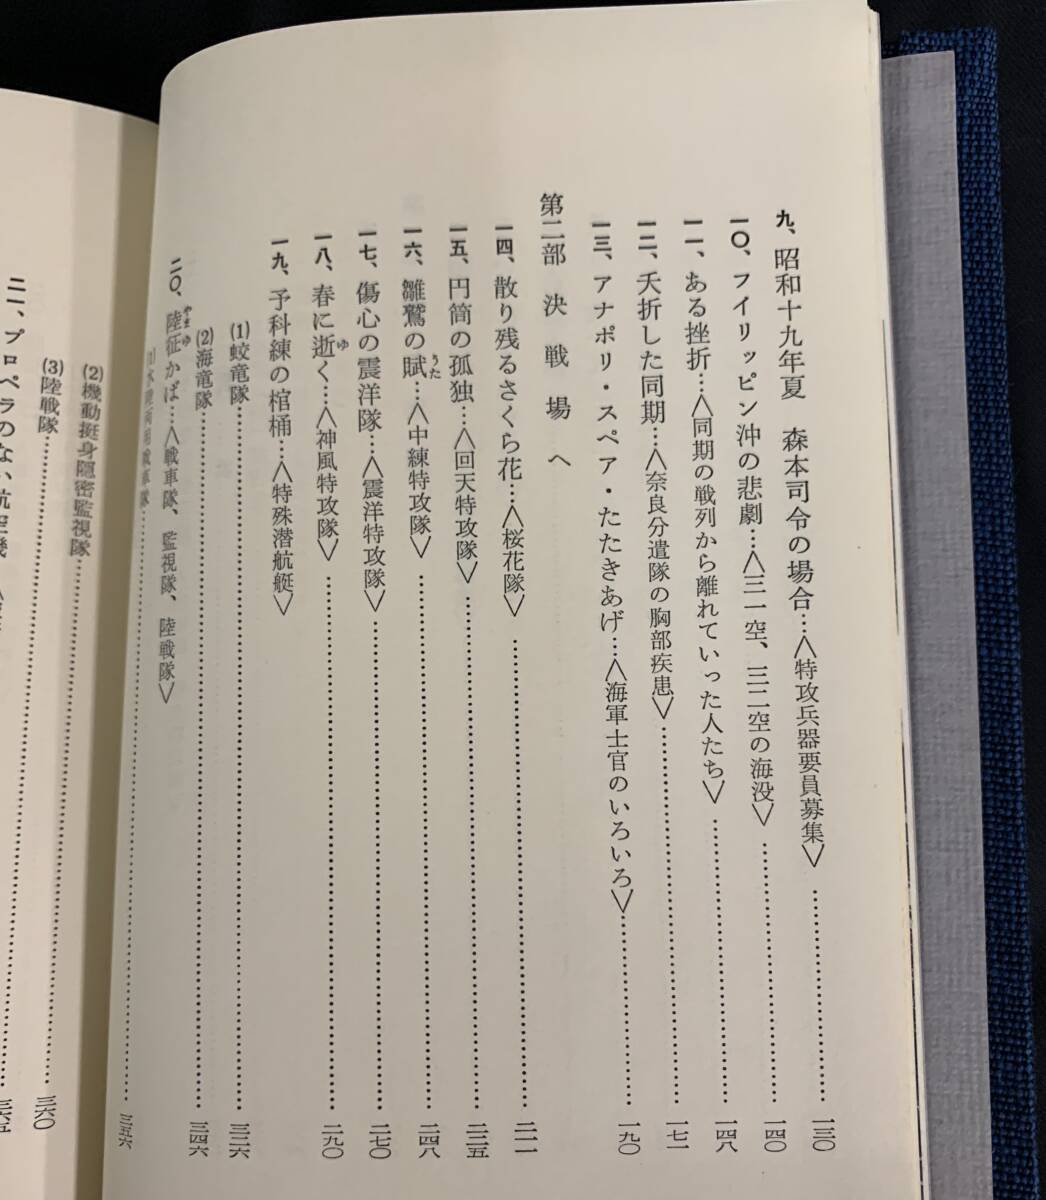 九、昭和十九年夏 森本司令の場合…〈特攻兵器要員募集〉……一三〇
一〇、フイリッピン沖の悲劇…〈三一空、三二空の海没〉……一四〇
一一、ある挫折…〈同期の戦列から離れていった人たち〉……一四八
一二、夭折した同期…〈奈良分遣隊の胸部疾患〉……一七一
一三、アナポリ・スペア・たたきあげ…〈海軍士官のいろいろ〉……一九〇
第二部 決戦場へ
一四、散り残るさくら花…〈桜花隊〉……二一一
一五、円筒の孤独…〈回天特攻隊〉……二二五
一六、雛鷲の賦…〈中練特攻隊〉……二四八
うた
一七、傷心の震洋隊…〈震洋特攻隊〉……二七〇
一八、春に逝く…〈神風特攻隊〉……二九〇
ゆ
一九、予科練の棺桶…〈特殊潜航艇〉
(1)蛟竜隊……三二六
(2)海竜隊……三四六
二〇、陸征かば…〈戦車隊、監視隊、陸戦隊〉
やまゆ
(1)水陸両用戦車隊……三五六
(2)機動挺身隠密監視隊
(3)陸戦隊……三六〇
二一、プロペラのない航空機……三六五